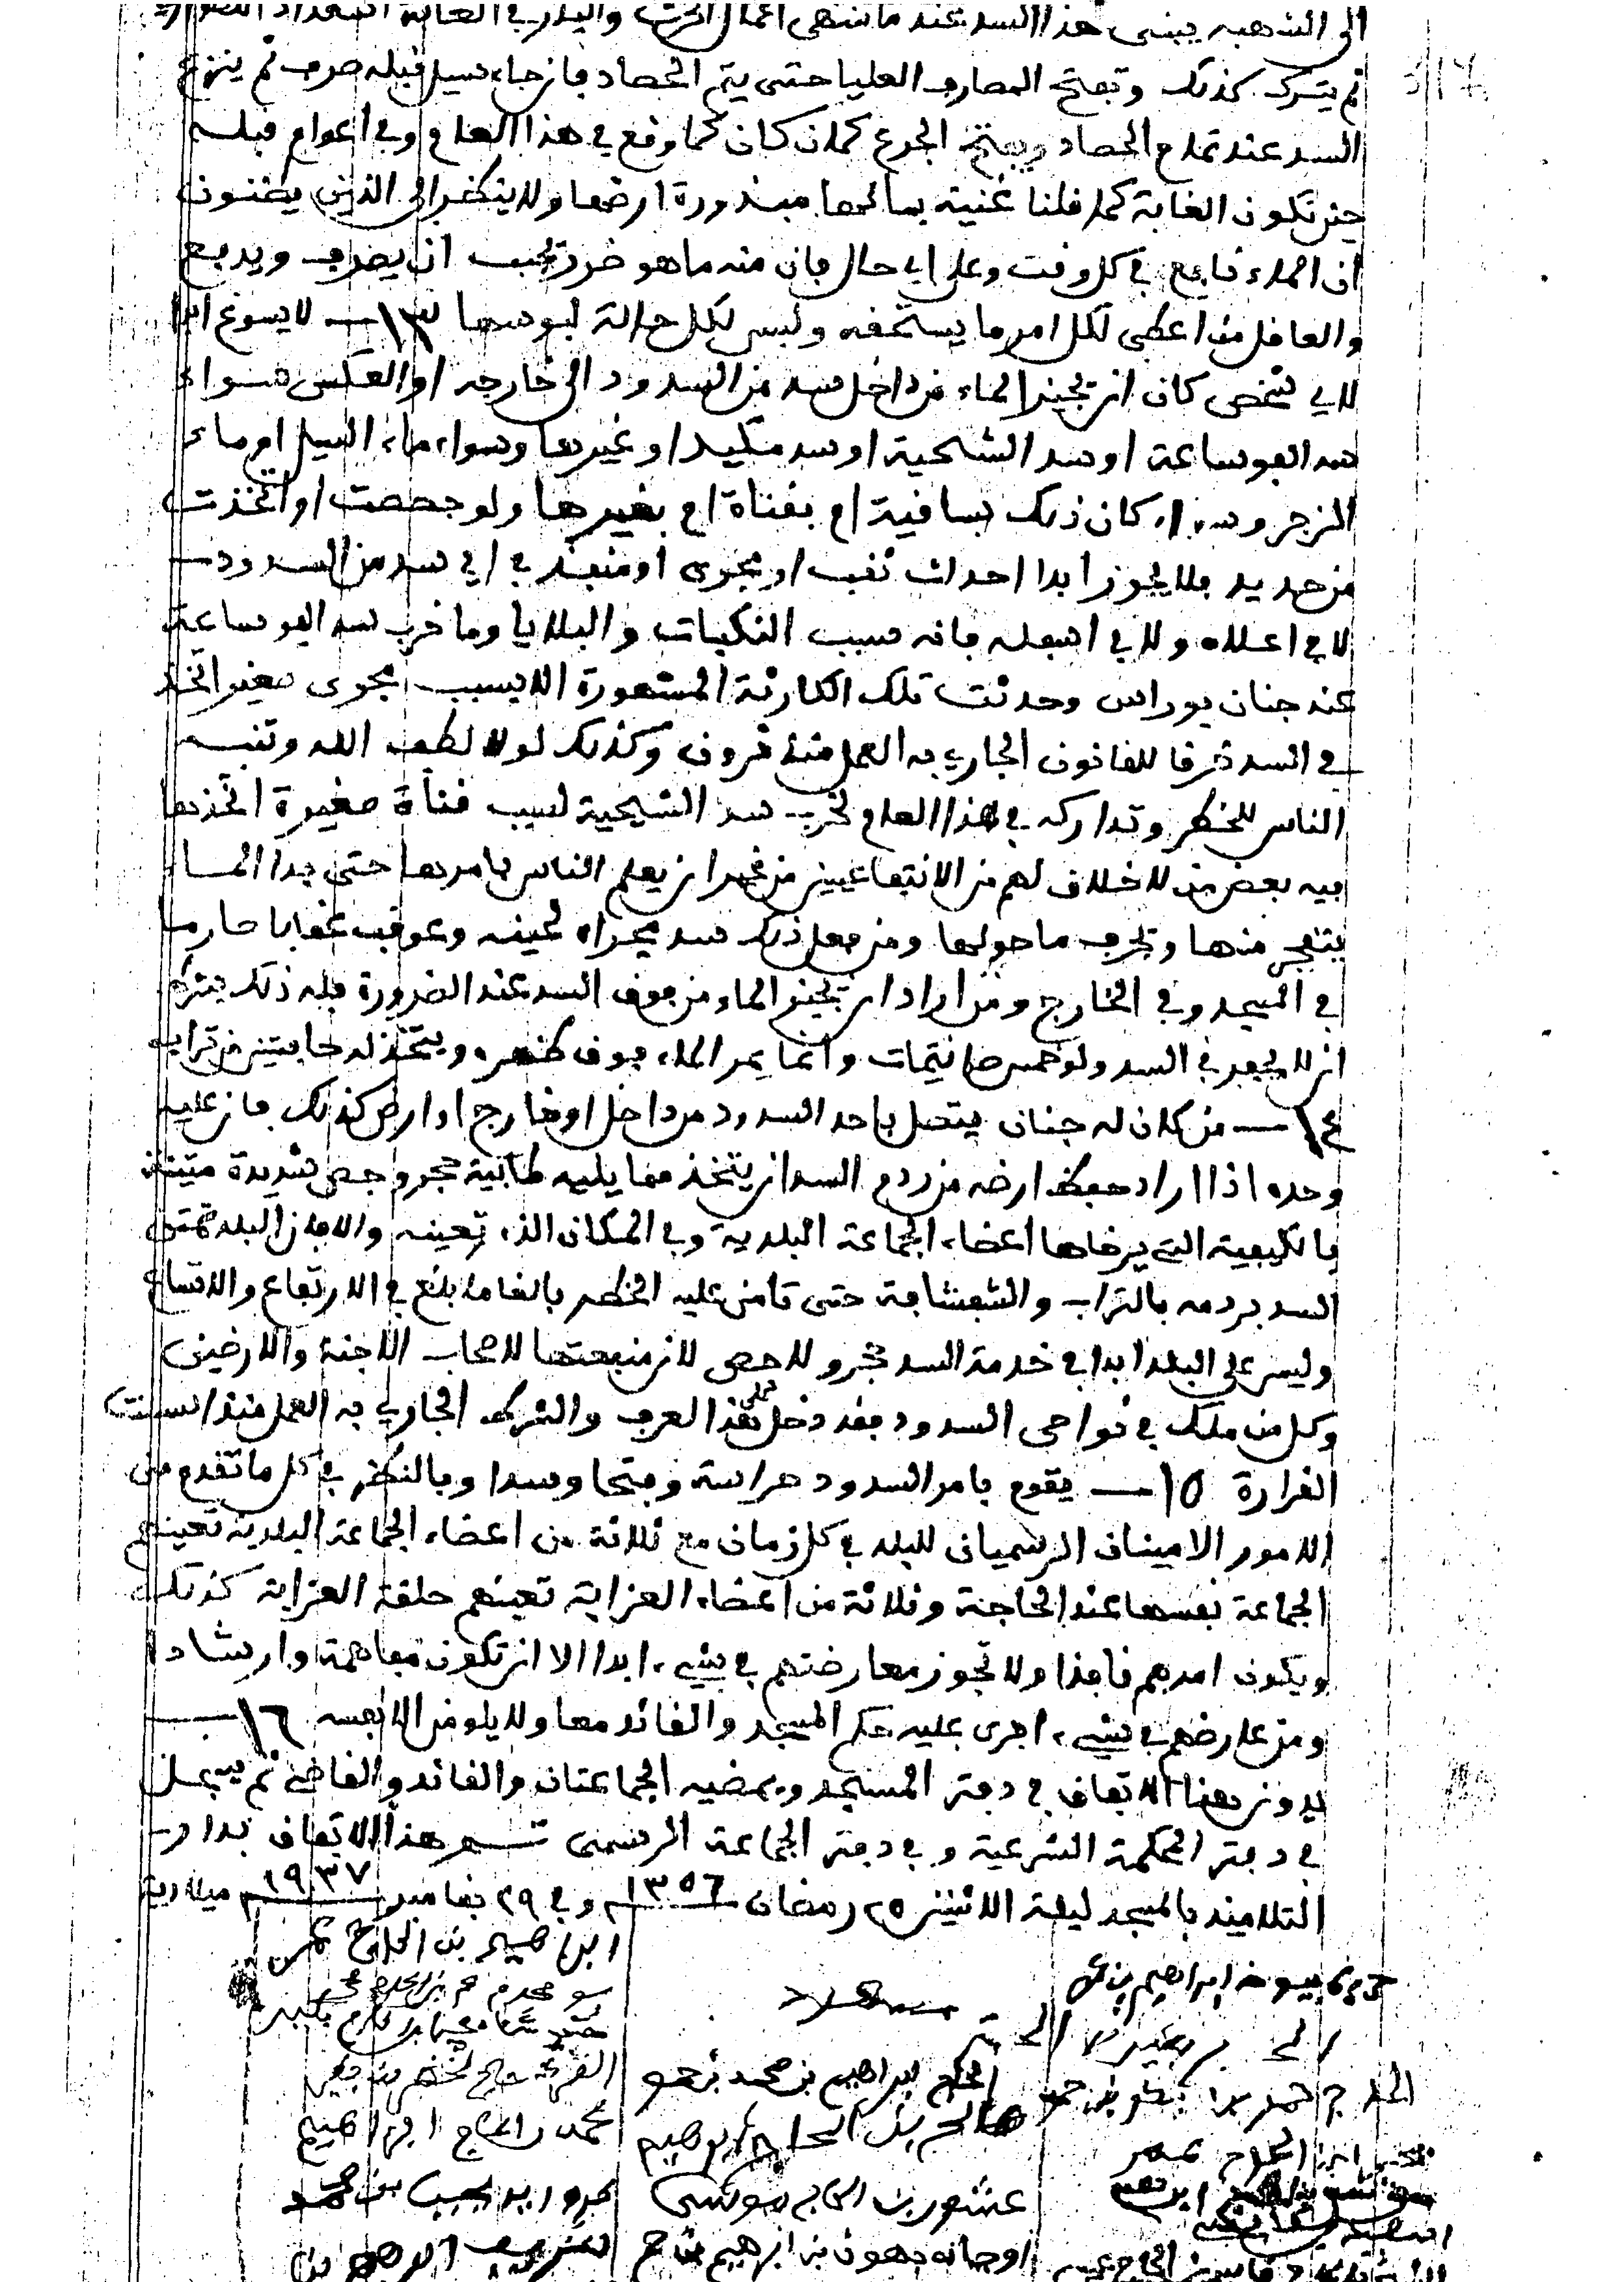 الى الشهبه يبنى هذا السد عند ما تنتهى اعمال الحرث والبذر في الغابة
ثم يترك كذلك وتفتح المصارف العليا حتى يتم الحصاد فان جاء سيل قبله صرف ثم ينزع
السد عند تمام الحصاد ويفتح الجرع كملان كان كما وقع في هذا العام وفي أعوام قبله
حين تكون الغابة كما قلنا غنية بمائها مبذورة ارضها ولا ينظر الى الذين يظنون
ان الماء نافع في كل وقت وعلى اي حال فان منه ما هو ضرر يجب ان يصرف ويدفع
والعاقل من اعطى لكل امر ما يستحقه ولبس لكل حالة لبوسها ١٣ — لا يسوغ ابدا
لاي شخص كان ان يجيز الماء من داخل سد من السدود الى خارجه او العكس سواء
سد البوساعة او سد الشحية او سد مكيد او غيرها وسواء ماء السيل ام ماء
الزجر وسواء كان ذلك بساقية ام بقناة ام بغيرها ولو جصصت او اتخذت
من حديد فلا يجوز ابدا احداث ثقب او مجرى او منفذ في اي سد من السدود —
لا في اعلاه ولا في اسفله فانه سبب النكبات والبلايا وما خرب سد البوساعة
عند جنان بوراس وحدثت تلك الكارثة المشهورة الا بسبب مجرى صغير اتخذ
في السد خرقا للقانون الجاري به العمل منذ قرون وكذلك لولا لطف الله وتنبه
الناس للخطر وتداركه في هذا العام لخرب سد الشيحية لسبب قناة صغيرة اتخذها
فيه بعض من لا خلاق لهم من الانتفاعيين من غير ان يعلم الناس بامرها حتى بدا الماء
يتفجر منها ويجرف ما حولها ومن فعل ذلك سد مجراه لحينه وعوقب عقابا صارما
في المسجد وفي الخارج ومن اراد ان يجيز الماء من فوق السد عند الضرورة فله ذلك بشرط
ان لا يحفر في السد ولو خمس صانتيمات وانما يمر الماء فوق ظهره ويتخذ له حافتين من تراب
١٤ — من كان له جنان يتصل باحد السدود من داخل او خارج او ارض كذلك فان عليه
وحده اذا اراد حفظ ارضه من ردم السد ان يتخذ مما يليه طابية حجر وجص شديدة متينة
بالكيفية التي يرضاها اعضاء الجماعة البلدية وفي المكان الذي تعينه والا فان البلد تقوى
السد بردمه بالتراب والشبشافة حتى تامن عليه الخطر بالغا ما بلغ في الارتفاع والاتساع
وليس على البلد ابدا في خدمة السد حجر ولا جص لان منفعتها لاصحاب الاجنة والارضين
وكل من ملك في نواحي السدود فقد دخل على هذا العرف والشرط الجاري به العمل منذ اسست
القرارة ١٥ — يقوم بامر السدود حراسة وفتحا وسدا وبالنظر في كل ما تقدم من
الامور الامينان الرسميان للبلد في كل زمان مع ثلاثة من اعضاء الجماعة البلدية تعينهم
الجماعة نفسها عند الحاجة وثلاثة من اعضاء العزابة تعينهم حلقة العزابة كذلك
ويكون امرهم نافذا ولا تجوز معارضتهم في شيء ابدا الا ان تكون مفاهمة وارشادا
ومن عارضهم في شيء اجرى عليه حكم المسجد والقائد معا ولا يلومن الا نفسه ١٦ —
يدون هذا الاتفاق في دفتر المسجد ويمضيه الجماعتان والقائد والقاضي ثم يسجل
في دفتر المحكمة الشرعية وفي دفتر الجماعة الرسمى تم هذا الاتفاق بدار
التلاميذ بالمسجد ليلة الاثنين ٢٥ رمضان ١٣٥٦ وفي ٢٩ نفامبر ١٩٣٧ ميلادية
ابراهيم بن الحاج
ابراهيم بن
الحاج ابراهيم بن محمد بن حمو
صالح بن الحاج ابراهيم
محمد بن الحاج ابراهيم
ابن الحاج عمر
عشور بن الحاج موسى